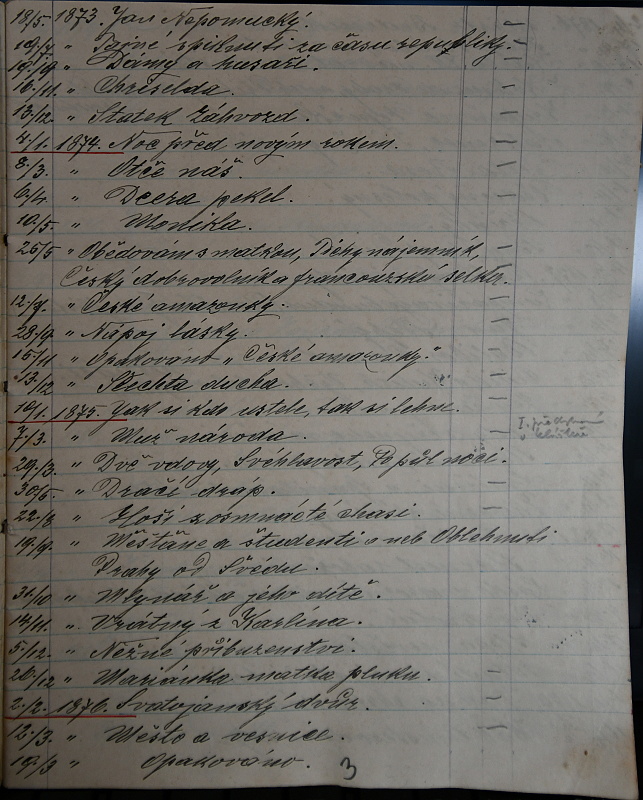 18/5. 1873. Jan Nepomucký.
" Tajné spiknutí za času republiky.
" Dámy a husaři.
16/11. " Chriselda.
13/12. " Statek Záhvozd.
4/1. 1874. Noc před novým rokem.
8/3. " Otče náš.
6/4. " Dcera pekel.
10/5. " Monika.
25/5 " Obědovám s matkou, Tichý nájemník,
Český dobrovolník a francouzská selka.
12/9. " České amazonky.
28/9. " Nápoj lásky.
15/11 " Opakováno „České amazonky."
13/12 " Šlechta ducha.
10/1. 1875. Jak si kdo ustele, tak si lehne.
7/3. " Muž národa.
29/3. " Dvě vdovy, Svéhlavost, Po půl noci.
30/5. " Dračí dráp.
22/8 " Hoši z osmnácté chasi.
19/9. " Měšťané a študenti neb Oblehnutí
Prahy od Švedů.
31/10 " Mlynář a jeho dítě.
14/11. " Vrátný z Karlína.
5/12. " Něžné příbuzenství.
26/12 " Mariánka matka pluku.
2/2. 1876. Svatojanský dvůr.
12/3. " Město a vesnice.
19/3 " Opakováno.
3